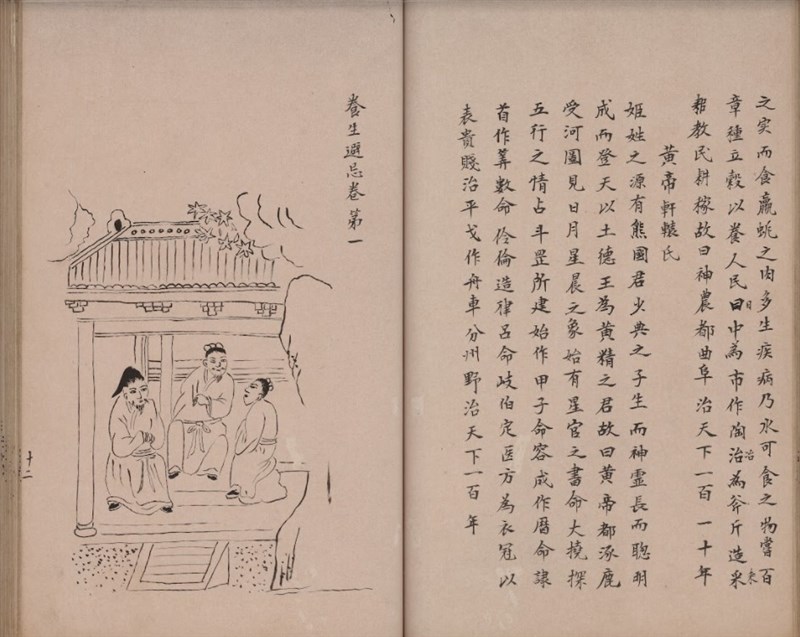 之实而食蠃蛖之肉多生疾病乃求可食之物嘗百
章種立穀以養人民曰中為市作陶治為斧斤造采
日
冶
耒
耜教民耕稼故曰神農都曲阜治天下一百一十年
黄帝軒轅氏
姬姓之源有熊國君少典之子生而神霊長而聰明
成而登天以土德王為黄精之君故曰黄帝都涿鹿
受河圖見日月星晨之象始有星官之書命大撓探
五行之情占斗罡所建始作甲子命容成作曆命隸
首作筭數命伶倫造律呂命歧伯定医方為衣冠以
表貴賤治平戈作舟車分州野治天下一百年
養生選忌卷第一
十二